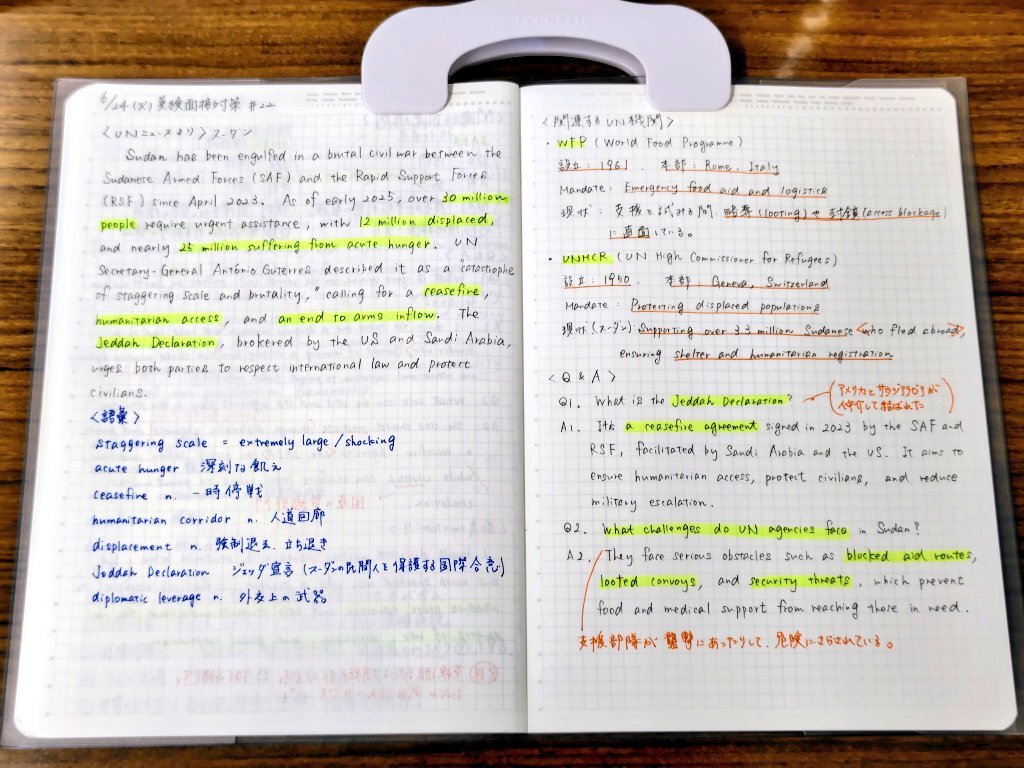 6/24 (火) 英検面接対策 #22
〈UNニュースより〉スーダン
Sudan has been engulfed in a brutal civil war between the
Sudanese Armed Forces (SAF) and the Rapid Support Forces
(RSF) since April 2023. As of early 2025, over 30 million
people require urgent assistance, with 12 million displaced,
and nearly 25 million suffering from acute hunger. UN
Secretary-General António Guterres described it as a "catastrophe
of staggering scale and brutality," calling for a ceasefire,
humanitarian access, and an end to arms inflow. The
Jeddah Declaration, brokered by the US and Saudi Arabia,
urges both parties to respect international law and protect
civilians.
〈語彙〉
staggering scale = extremely large / shocking
acute hunger 深刻な飢え
ceasefire n. 一時停戦
humanitarian corridor n. 人道回廊
displacement n. 強制退去、立ち退き
Jeddah Declaration ジェッダ宣言 (スーダンの民間人を保護する国際合意)
diplomatic leverage n. 外交上の武器
〈関連するUN機関〉
・WFP (World Food Programme)
設立：1961 本部：Rome, Italy
Mandate: Emergency food aid and logistics
現状：支援を試みる間、略奪(looting)や封鎖(access blockage)
に直面している。
・UNHCR (UN High Commissioner for Refugees)
設立：1950 本部：Geneva, Switzerland
Mandate: Protecting displaced populations
現状(スーダン): Supporting over 3.3 million Sudanese who fled abroad,
ensuring shelter and humanitarian registration
〈Q & A〉
Q1. What is the Jeddah Declaration?
(アメリカとサウジアラビアが
仲介して結ばれた)
A1. It's a ceasefire agreement signed in 2023 by the SAF and
RSF, facilitated by Saudi Arabia and the US. It aims to
ensure humanitarian access, protect civilians, and reduce
military escalation.
Q2. What challenges do UN agencies face in Sudan?
A2. They face serious obstacles such as blocked aid routes,
looted convoys, and security threats, which prevent
food and medical support from reaching those in need.
支援部隊が襲撃にあったりして、危険にさらされている。